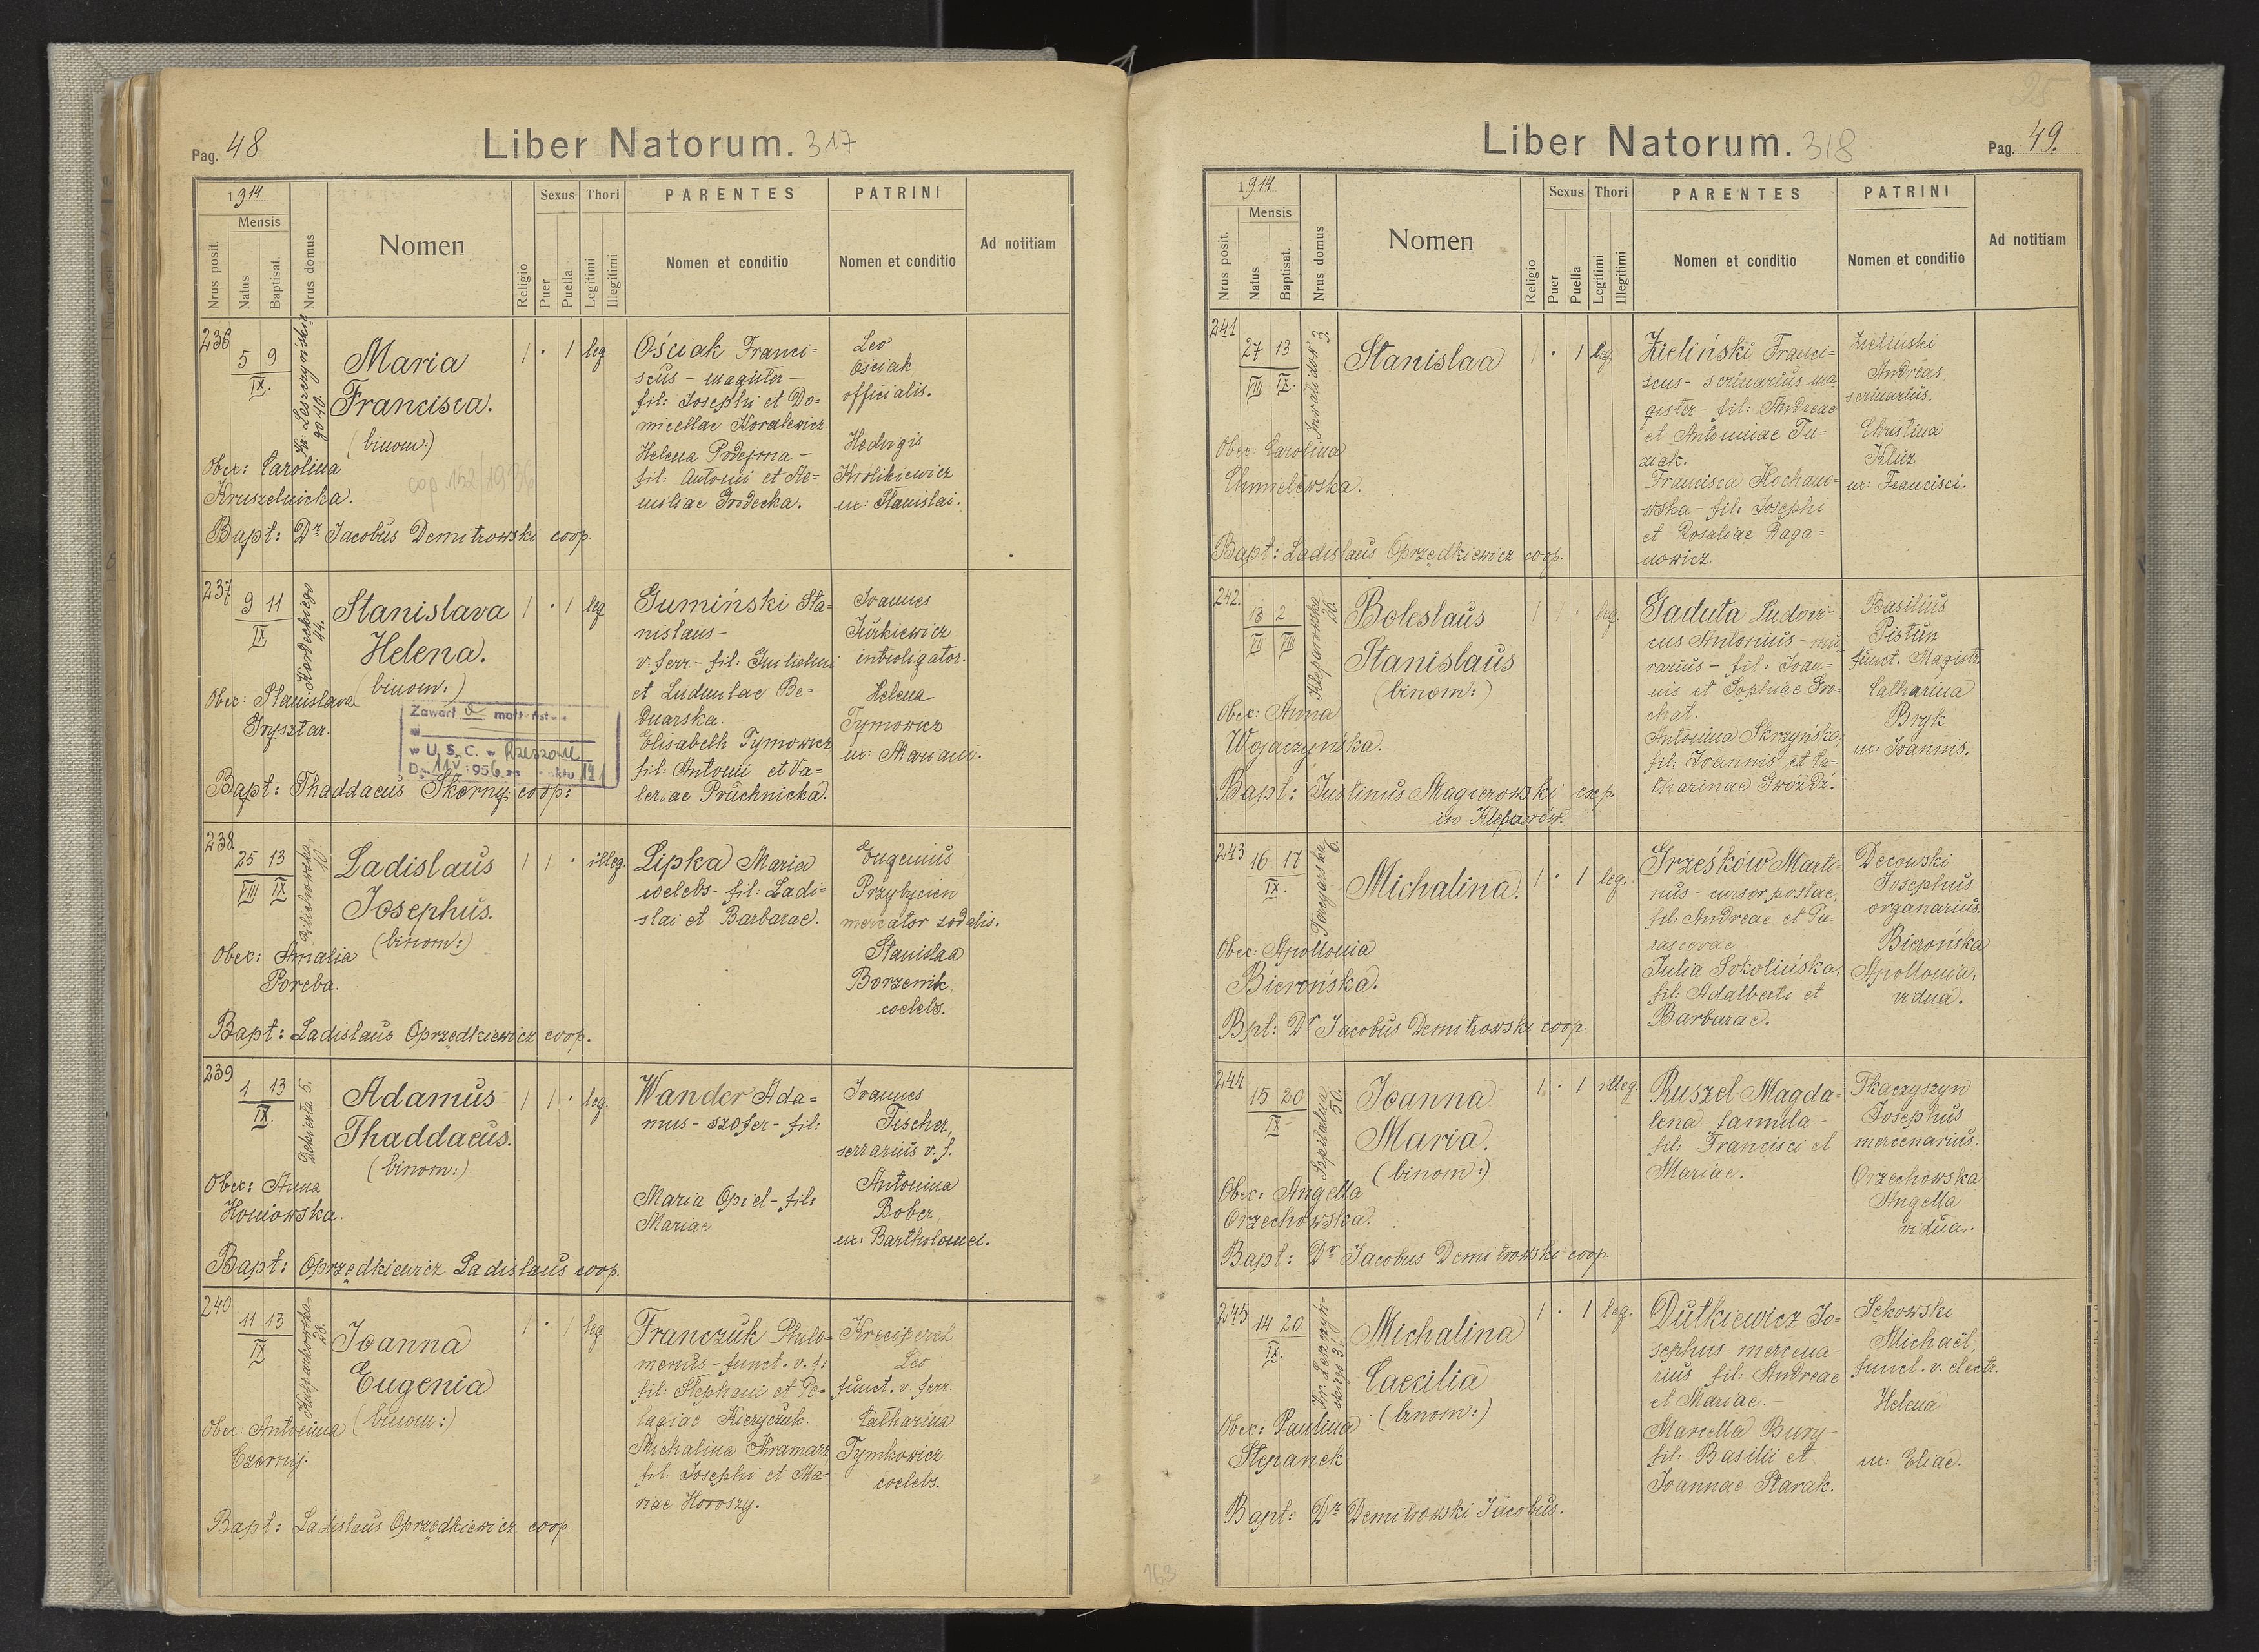 Pag. 48
Liber Natorum. 317
1914
Mensis
Nrus posit.
Natus
Baptisat.
Nrus domus
Nomen
Religio
Sexus
Puer
Puella
Thori
Legitimi
Illegitimi
PARENTES
Nomen et conditio
PATRINI
Nomen et conditio
Ad notitiam
236
5 9
IX.
go 40.
Maria
Francisca.
(binom:)
1 · 1 leg.
Obex: Carolina
Kruszelnicka.
cop. 152/1936
Bapt: Dr Jacobus Demitrowski coop.
Ościak Franci=
scus - magister -
fil: Josephi et Do=
micellae Kordlewicz.
Helena Podefrna -
fil: Antonii et Ae=
miliae Grodecka.
Leo
Ościak
officialis.
Hedvigis
Krolikiewicz
ux: Stanislai.
237
9 11
IX
Kordeckiego
44.
Stanislava
Helena.
(binom:)
1 · 1 leg
Obex: Stanislava
Grysztar.
Zawarł
w U.S.C. w Rzeszowie
Dn. 11.V.1956
Bapt: Thaddaeus Skorny coop:
Gumiński Sta=
nislaus -
v. ferr. - fil: Guilielmi
et Ludmilae Be=
dnarska.
Elisabeth Tymowicz
fil: Antonii et Va=
leriae Pruchnicka.
Joannes
Jurkiewicz
introligator.
Helena
Tymowicz
ux: Mariani.
238
25 13
VIII IX
Pilichowska
10
Ladislaus
Josephus.
(binom:)
1 1 · illeg.
Obex: Amalia
Poreba.
Bapt: Ladislaus Oprzędkiewicz coop.
Lipka Maria
coelebs - fil: Ladi=
slai et Barbarae.
Eugenius
Przybycien
mercator sodalis.
Stanislaa
Borzemik
coelebs.
239
1 13
IX.
Dekierta 5.
Adamus
Thaddaeus.
(binom:)
1 1 · leg.
Obex: Anna
Honiowska.
Bapt: Oprzędkiewicz Ladislaus coop.
Wander Ada=
mus - szofer - fil:
Maria Opiel - fil:
Mariae
Joannes
Fischer,
serrarius v. f.
Antonina
Bober,
ux: Bartholomei.
240
11 13
IX
Kulparkowska
28.
Joanna
Eugenia
(binom:)
1 · 1 leg
Obex: Antonina
Czornij.
Bapt: Ladislaus Oprzędkiewicz coop.
Franczuk Philo=
menus - funct. v. f:
fil: Stephani et Pe=
lagiae Kiczyczuk.
Michalina Kramarz
fil: Josephi et Ma=
riae Horoszy.
Leo
funct. v. ferr.
Catharina
Tymkowicz
coelebs.
25
Liber Natorum. 318
Pag. 49.
1914
Mensis
Nrus posit.
Natus
Baptisat.
Nrus domus
Nomen
Religio
Sexus
Puer
Puella
Thori
Legitimi
Illegitimi
PARENTES
Nomen et conditio
PATRINI
Nomen et conditio
Ad notitiam
241
27 13
VIII IX.
Inwalidow 3.
Stanislaa
1 · 1 leg.
Obex: Carolina
Chmielewska.
Bapt: Ladislaus Oprzędkiewicz coop.
Zieliński Franci=
scus - scrinarius ma
gister - fil: Andreae
et Antoninae Tu=
ziak.
Francisca Kochano=
wska - fil: Josephi
et Rosaliae Raga=
nowicz.
Zielinski
Andreas
scrinarius.
Christina
Kluz
ux: Francisci.
242.
13 2
VII VIII
Kleparowska
26.
Boleslaus
Stanislaus
(binom:)
1 1 · leg.
Obex: Anna
Wojaczyńska.
Bapt: Justinus Magierowski exp.
in Kleparów.
Gaduta Ludovi=
cus Antonius - mu
rarius - fil: Joan=
nis et Sophiae Gro=
chat.
Antonina Skrzyńska,
fil: Joannis et Ca=
tharinae Gwóźdź.
Basilius
Pistun
funct. Magistr.
Catharina
Bryk
ux: Joannis.
243
16 17
IX.
Torcyarska
6.
Michalina.
1 · 1 leg.
Obex: Apollonia
Bierońska.
Bpt: Dr Jacobus Demitrowski coop.
Grześków Marti=
nus - cursor postae,
fil: Andreae et Pa=
rascevae
Julia Sokolińska,
fil: Adalberti et
Barbarae.
Decowski
Josephus
organarius.
Bierońska
Apollonia.
vidua.
244
15 20
IX
Szpitalna
50.
Joanna
Maria.
(binom:)
1. · 1 illeg.
Obex: Angella
Orzechowska.
Bapt: Dr Jacobus Demitrowski coop.
Ruszel Magda=
lena famula -
fil: Francisci et
Mariae.
Tkaczyszyn
Josephus
mercenarius.
Orzechowska
Angella
vidua.
245
14 20
IX.
Michalina
Caecilia
(binom:)
1 · 1 leg.
Obex: Paulina
Stepanek
Bapt: Dr Demitrowski Jacobus.
Dutkiewicz Jo=
sephus mercena=
rius - fil: Andreae
et Mariae. -
Marcella Bury -
fil: Basilii et
Joannae Starak.
Sękowski
Michaël,
funct. v. electr.
Helena
ux: Eliae.
163